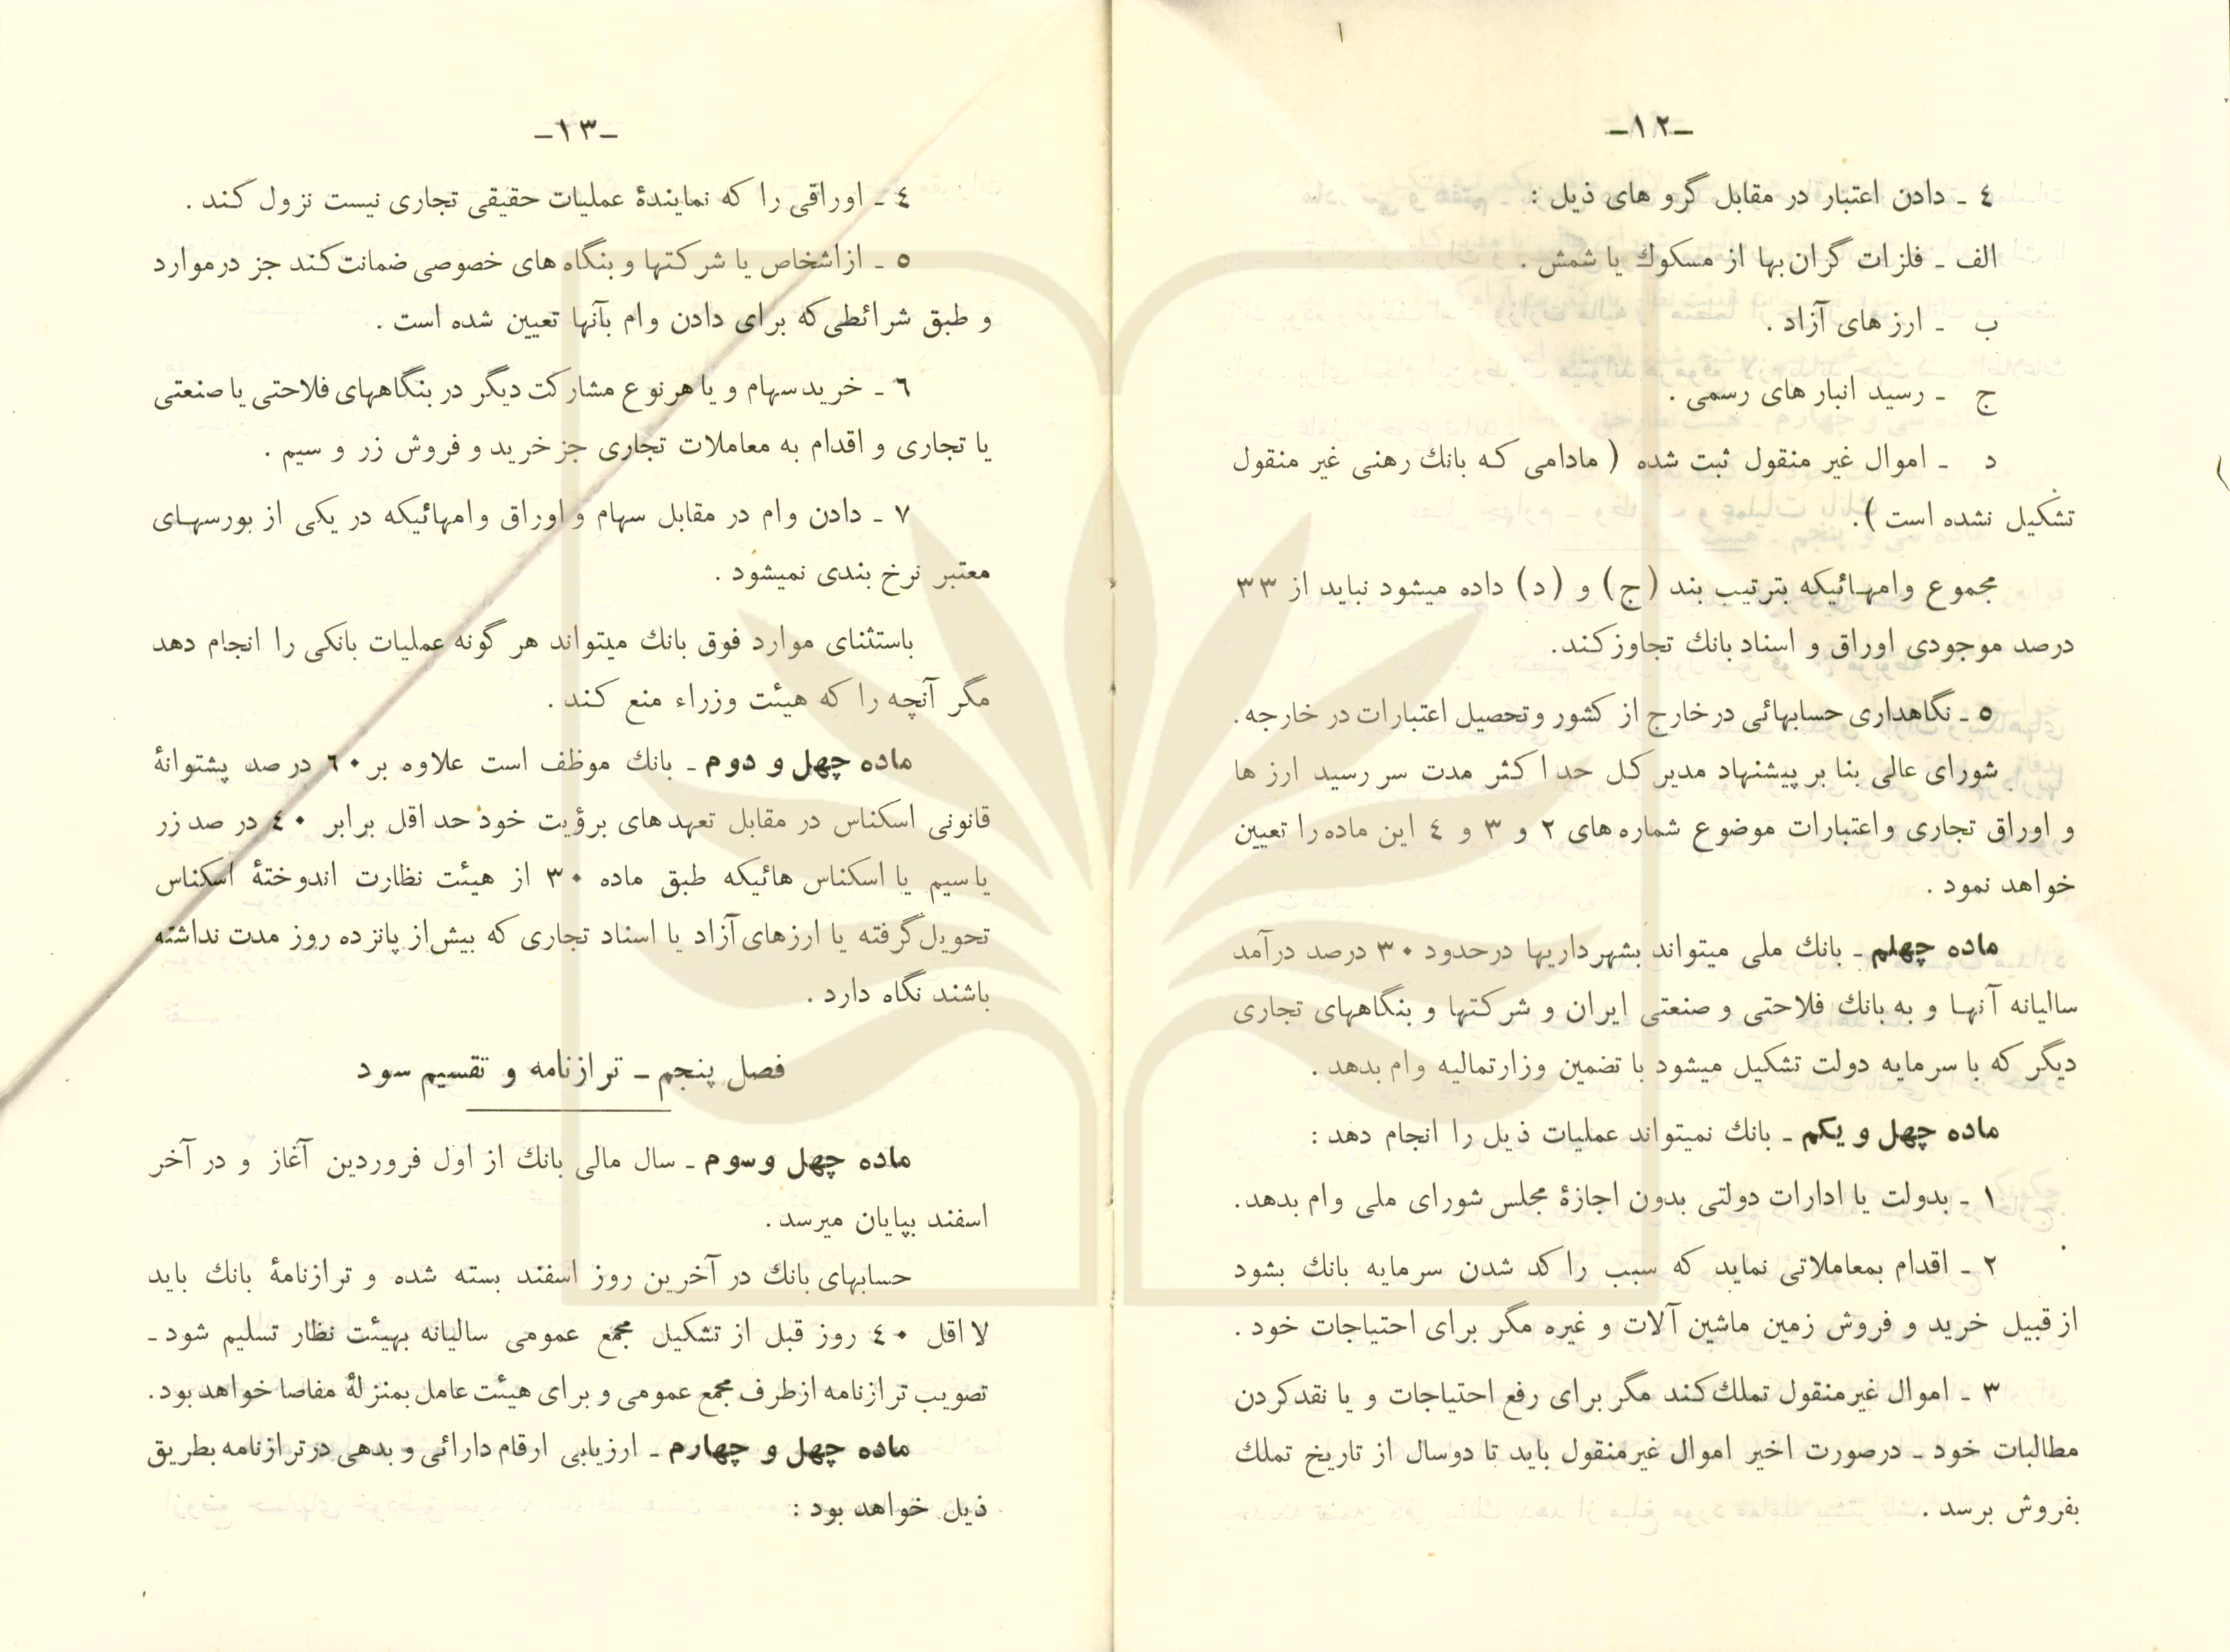 ـ۱۲ـ
٤ ـ دادن اعتبار در مقابل گرو های ذیل :
الف ـ فلزات گران‌بها از مسکوك یا شمش .
ب ـ ارز های آزاد .
ج ـ رسید انبار های رسمی .
د ـ اموال غیر منقول ثبت شده ( مادامی که بانك رهنی غیر منقول
تشکیل نشده است ).
مجموع وامهائیکه بترتیب بند (ج) و (د) داده میشود نباید از ۳۳
درصد موجودی اوراق و اسناد بانك تجاوز کند.
٥ ـ نگاهداری حسابهائی در خارج از کشور و تحصیل اعتبارات در خارجه.
شورای عالی بنا بر پیشنهاد مدیر کل حداکثر مدت سر رسید ارز ها
و اوراق تجاری و اعتبارات موضوع شماره های ۲ و ۳ و ٤ این ماده را تعیین
خواهد نمود .
ماده چهلم ـ بانك ملی میتواند بشهرداریها در حدود ۳۰ درصد درآمد
سالیانه آنها و به بانك فلاحتی و صنعتی ایران و شرکتها و بنگاههای تجاری
دیگر که با سرمایه دولت تشکیل میشود با تضمین وزارتمالیه وام بدهد .
ماده چهل و یکم ـ بانك نمیتواند عملیات ذیل را انجام دهد :
۱ ـ بدولت یا ادارات دولتی بدون اجازهٔ مجلس شورای ملی وام بدهد.
۲ ـ اقدام بمعاملاتی نماید که سبب راکد شدن سرمایه بانك بشود
از قبیل خرید و فروش زمین ماشین آلات و غیره مگر برای احتیاجات خود .
۳ ـ اموال غیرمنقول تملك کند مگر برای رفع احتیاجات و یا نقد کردن
مطالبات خود ـ درصورت اخیر اموال غیرمنقول باید تا دوسال از تاریخ تملك
بفروش برسد .
ـ۱۳ـ
٤ ـ اوراقی را که نمایندهٔ عملیات حقیقی تجاری نیست نزول کند .
٥ ـ از اشخاص یا شرکتها و بنگاه های خصوصی ضمانت کند جز در موارد
و طبق شرائطی که برای دادن وام بآنها تعیین شده است .
٦ ـ خرید سهام و یا هر نوع مشارکت دیگر در بنگاههای فلاحتی یا صنعتی
یا تجاری و اقدام به معاملات تجاری جز خرید و فروش زر و سیم .
۷ ـ دادن وام در مقابل سهام و اوراق وامهائیکه در یکی از بورسهای
معتبر نرخ بندی نمیشود .
باستثنای موارد فوق بانك میتواند هر گونه عملیات بانکی را انجام دهد
مگر آنچه را که هیئت وزراء منع کند .
ماده چهل و دوم ـ بانك موظف است علاوه بر ٦۰ درصد پشتوانهٔ
قانونی اسکناس در مقابل تعهدهای برؤیت خود حد اقل برابر ٤۰ در صد زر
یا سیم یا اسکناس هائیکه طبق ماده ۳۰ از هیئت نظارت اندوختهٔ اسکناس
تحویل گرفته یا ارزهای آزاد یا اسناد تجاری که بیش از پانزده روز مدت نداشته
باشند نگاه دارد .
فصل پنجم ـ ترازنامه و تقسیم سود
ماده چهل و سوم ـ سال مالی بانك از اول فروردین آغاز و در آخر
اسفند بپایان میرسد .
حسابهای بانك در آخرین روز اسفند بسته شده و ترازنامهٔ بانك باید
لااقل ٤۰ روز قبل از تشکیل مجمع عمومی سالیانه بهیئت نظار تسلیم شود ـ
تصویب ترازنامه از طرف مجمع عمومی و برای هیئت عامل بمنزلهٔ مفاصا خواهد بود.
ماده چهل و چهارم ـ ارزیابی ارقام دارائی و بدهی در ترازنامه بطریق
ذیل خواهد بود :